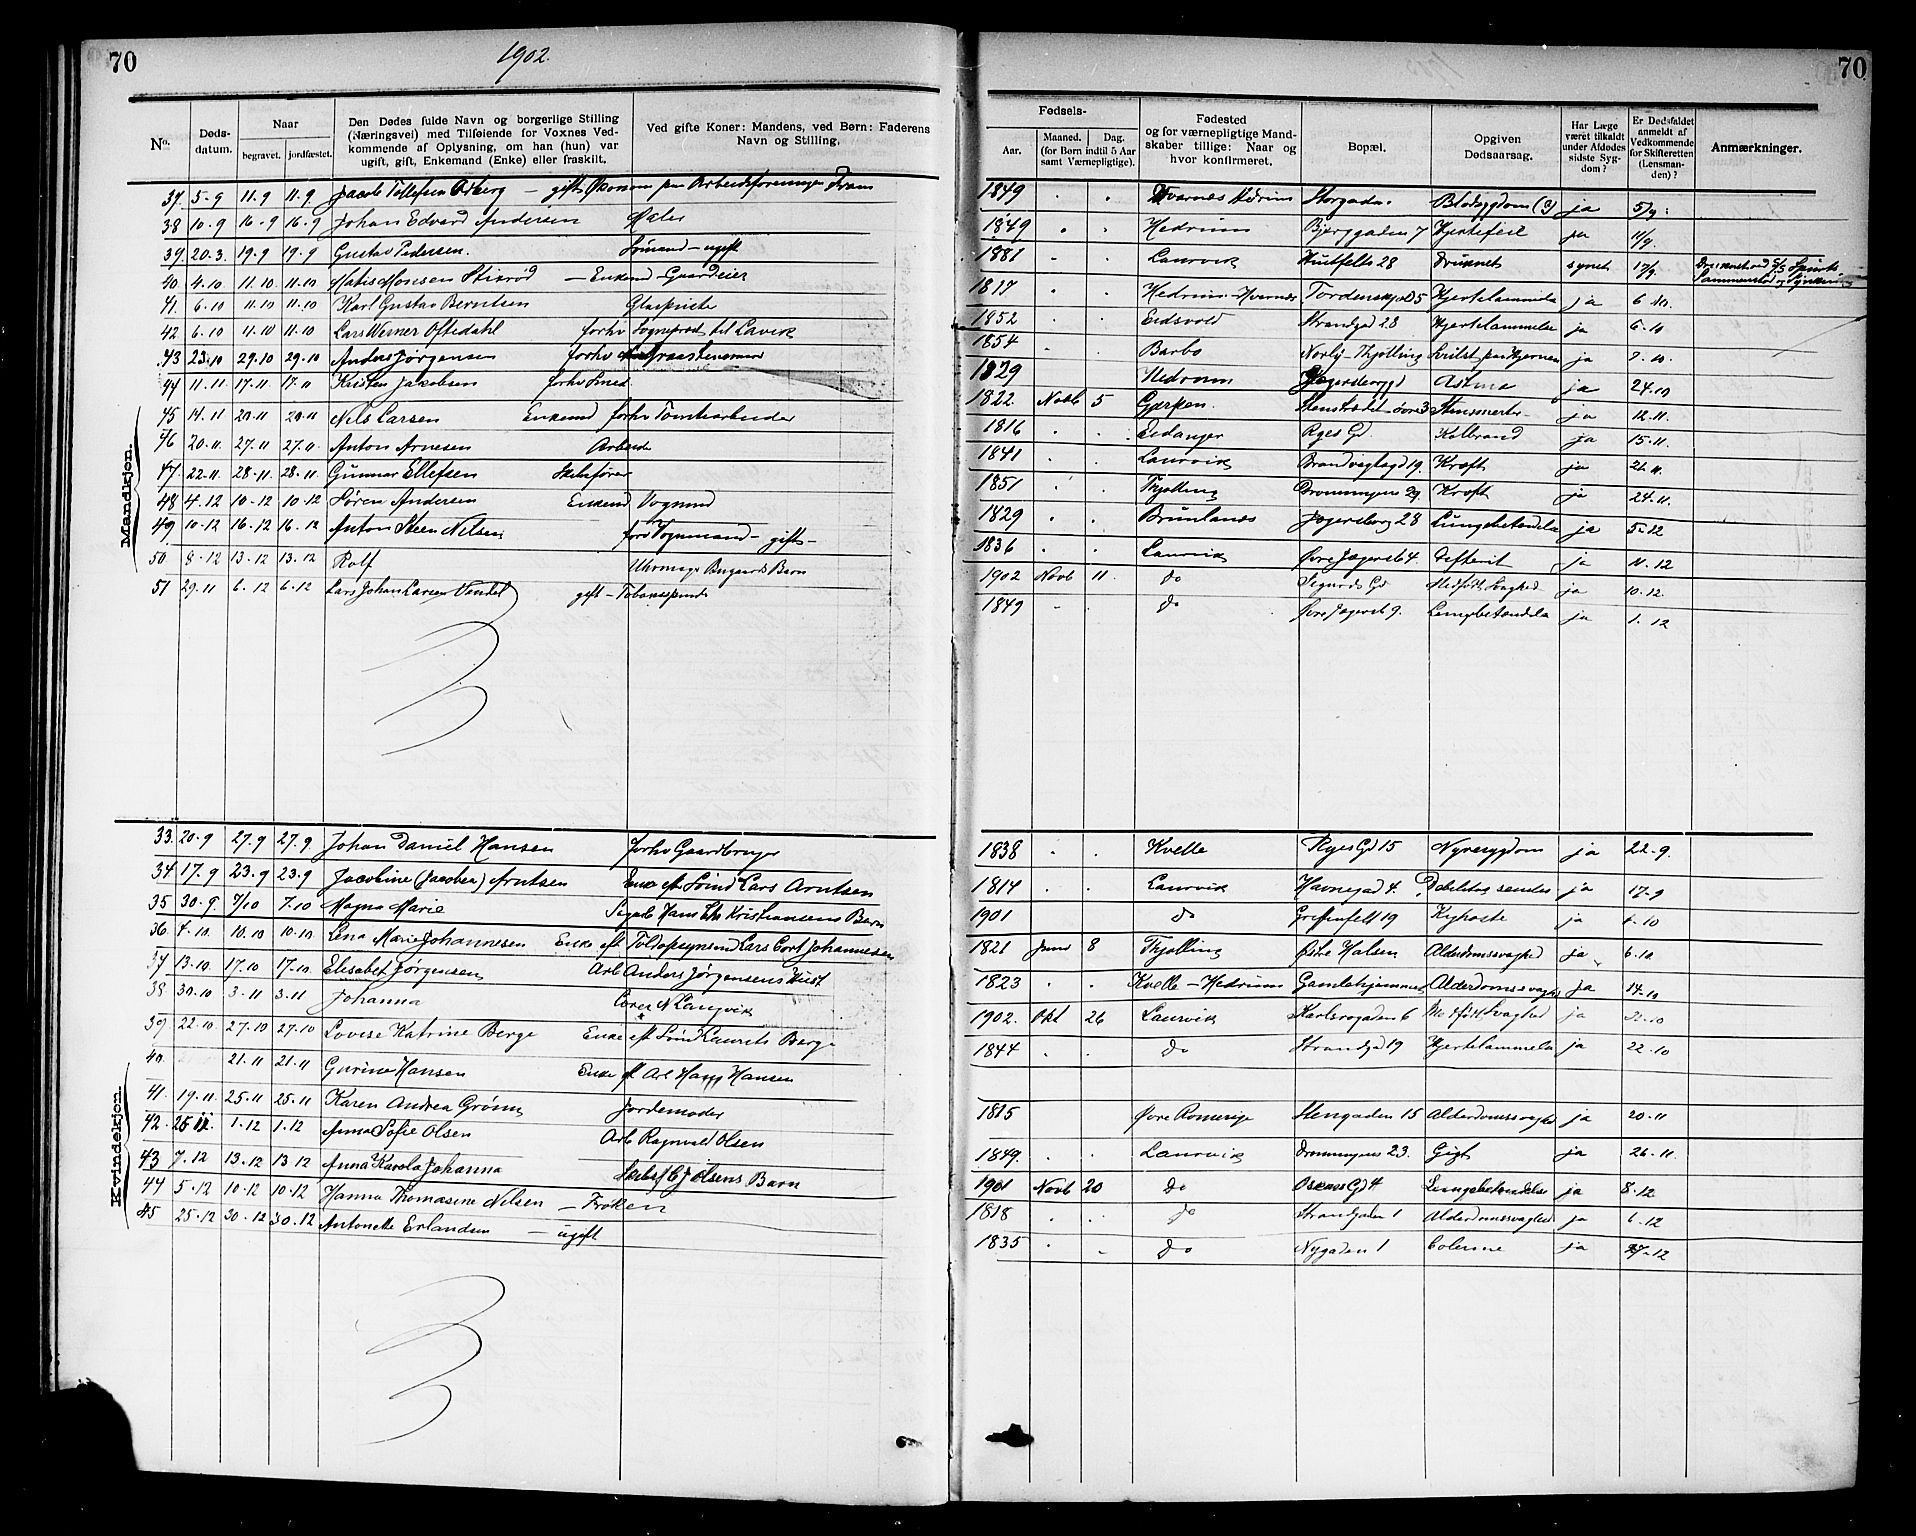 70
1902.
No.
Døds-
datum.
Naar
begravet.
jordfæstet.
Den Dødes fulde Navn og borgerlige Stilling
(Næringsvei) med Tilføiende for Voxnes Ved-
kommende af Oplysning, om han (hun) var
ugift, gift, Enkemand (Enke) eller fraskilt.
Ved gifte Koner: Mandens, ved Børn: Faderens
Navn og Stilling.
37. 5-9 11.9 11.9 Jacob Tollefsen — gift
38 10.9 16-9 16.9 Johan Edvard Andersen Maler
39. 20-3. 19.9 19.9 Gustav Pedersen. Sømand — ugift
40 4.10 11.10 11.10 Matis Monsen Stixrød — Enkemd Gaardeier
41 6.10 11.10 11.10 Karl Gustav Berntsen
42 6.10 11.10 11.10 Lars Werner Oftedahl forhv Sogneprest til Lavik
43 23.10 29.10 29.10 Anders Jørgensen forhv
44 11.11 17.11 17.11 Kristen Jakobsen forhv Smed
45 14.11 20.11 20.11 Nils Larsen Enkemd forhv Tomtearbeider
46 20.11 27.11 27.11 Anton Arnesen Arbeider
47. 22.11 28.11 28.11 Gunnar Ellefsen Skibsfører
48 4.12 10-12 10.12 Søren Andersen Enkemd Vognmd
49 10-12 16.12 16.12 Anton Steen Nilsen forv Vognmand — gift —
50 8-12 13-12 13.12 Rolf Uhrmager Bugaards Barn
51 29.11 6.12 6.12 Lars Johan Larsen Vendel gift — Tobaksspinder
Mandkjøn.
33. 20-9 27.9 27.9. Johan Daniel Hansen forhv Gaardbruger
34 17.9 23.9 23.9 Jacobine (Jacobea) Arntsen Enke eft Sømd Lars Arntsen
35 30-9. 7/10 7.10 Magna Marie Kristiansens Barn
36. 4.10 10.10 10.10 Lena Marie Johannesen Enke eft Toldopsynsmd Lars Cort Johannesen
37 13.10 17.10 17.10 Elisabet Jørgensen Arb Anders Jørgensens Hust
38 30.10 3.11 3.11 Johanna N Langvik
39 22.10 27.10 27.10 Lovise Katrine Berge Enke eft Sømd Laurits Berge
40. 21.11 21.11 Gurine Hansen Enke eft Arb Hans Hansen
41. 19.11 25.11 25.11 Karen Andrea Grønn Jordemoder
42. 25 11. 1.12 1.12 Anna Sofie Olsen Arb Ragnvald Olsen
43 7.12 13.12 13 12 Anna Karola Johanna Olsens Barn
44 5.12 10.12 10.12 Hanna Thomasine Nilsen — Frøken
45 25.12 30.12 30.12 Antonette Erlandsen — ugift
Kvindekjøn.
70
Fødsels-
Aar.
Maaned.
Dag.
(for Børn indtil 5 Aar
samt Værnepligtige).
Fødested
og for værnepligtige Mand-
skaber tillige: Naar og
hvor konfirmeret.
Bopæl.
Opgiven
Dødsaarsag.
Har Læge
været tilkaldt
under Afdødes
sidste Syg-
dom?
Er Dødsfaldet
anmeldt af
Vedkommende
for Skifteretten
(Lensman-
den)?
Anmærkninger.
1849 Hvarnes Hedrum Storgaden Blodsygdom (?) ja 5/9
1849 Hedrum Bjerggaden 7 Hjertefeil ja 11/9
1881 Laurvik Huitfelts 28 Druknet synet 17/9
1817 Hedrum — Hvarnes Tordenskjold 5 Hjertelammelse ja 6.10
1852 Eidsvold Strandgd 28 Hjertelammelse ja 6.10
1854 Barbo ja 7.10.
1829 Hedrum Jægersborggd Astma ja 24.10
1822. Novb 5 Gjerpen. ja 12.11.
1816 Eidanger Ryes Gd. Kolbrand ja 15.11.
1841 Laurvik Brandvagtsgd 19. Kræft ja 21.11.
1851 Thjølling Dronningens 29. Kræft ja 24.11.
1829 Brunlanes Jægersborg 28 Lungebetændelse ja 5.12
1836 Laurvik Øvre Jægersb 4. Difterit ja 11.12
1902 Novb 11 do Sigurds Gd Medfødt Svaghed ja 10.12.
1849 do Øvre Jægersb 9. Lungebetændelse ja 1.12
1838 Kvelle Ryes Gd 15 Nyresygdom ja 22-9.
1814 Laurvik Havnegad 4. ja 17-9
1901 do Griffenfelt 19 Kighoste ja 1.10
1821 Juni 8 Thjølling Østre Halsen Alderdomssvaghed ja 6.10
1823 Kvelle — Hedrum Gamlehjemmet Alderdomssvaghed ja 14.10
1902. Okt 26 Laurvik Karlsrogaden 6 Medfødt Svaghed ja
1844 do Strandgd 19 Hjertelammelse ja 22.10
1815 Øvre Romerige Stengaden 15 Alderdomssvaghed ja 20.11
1849. Laurvik Dronningens 23. Gigt ja 26.11.
1901 Novb 20 do Oscars Gd 4 Lungebetændelse ja 8.12
1818 do Strandgaden 1 Alderdomssvaghed ja 6.12
1835 do Nygaden 1 Colerine ja 27-12